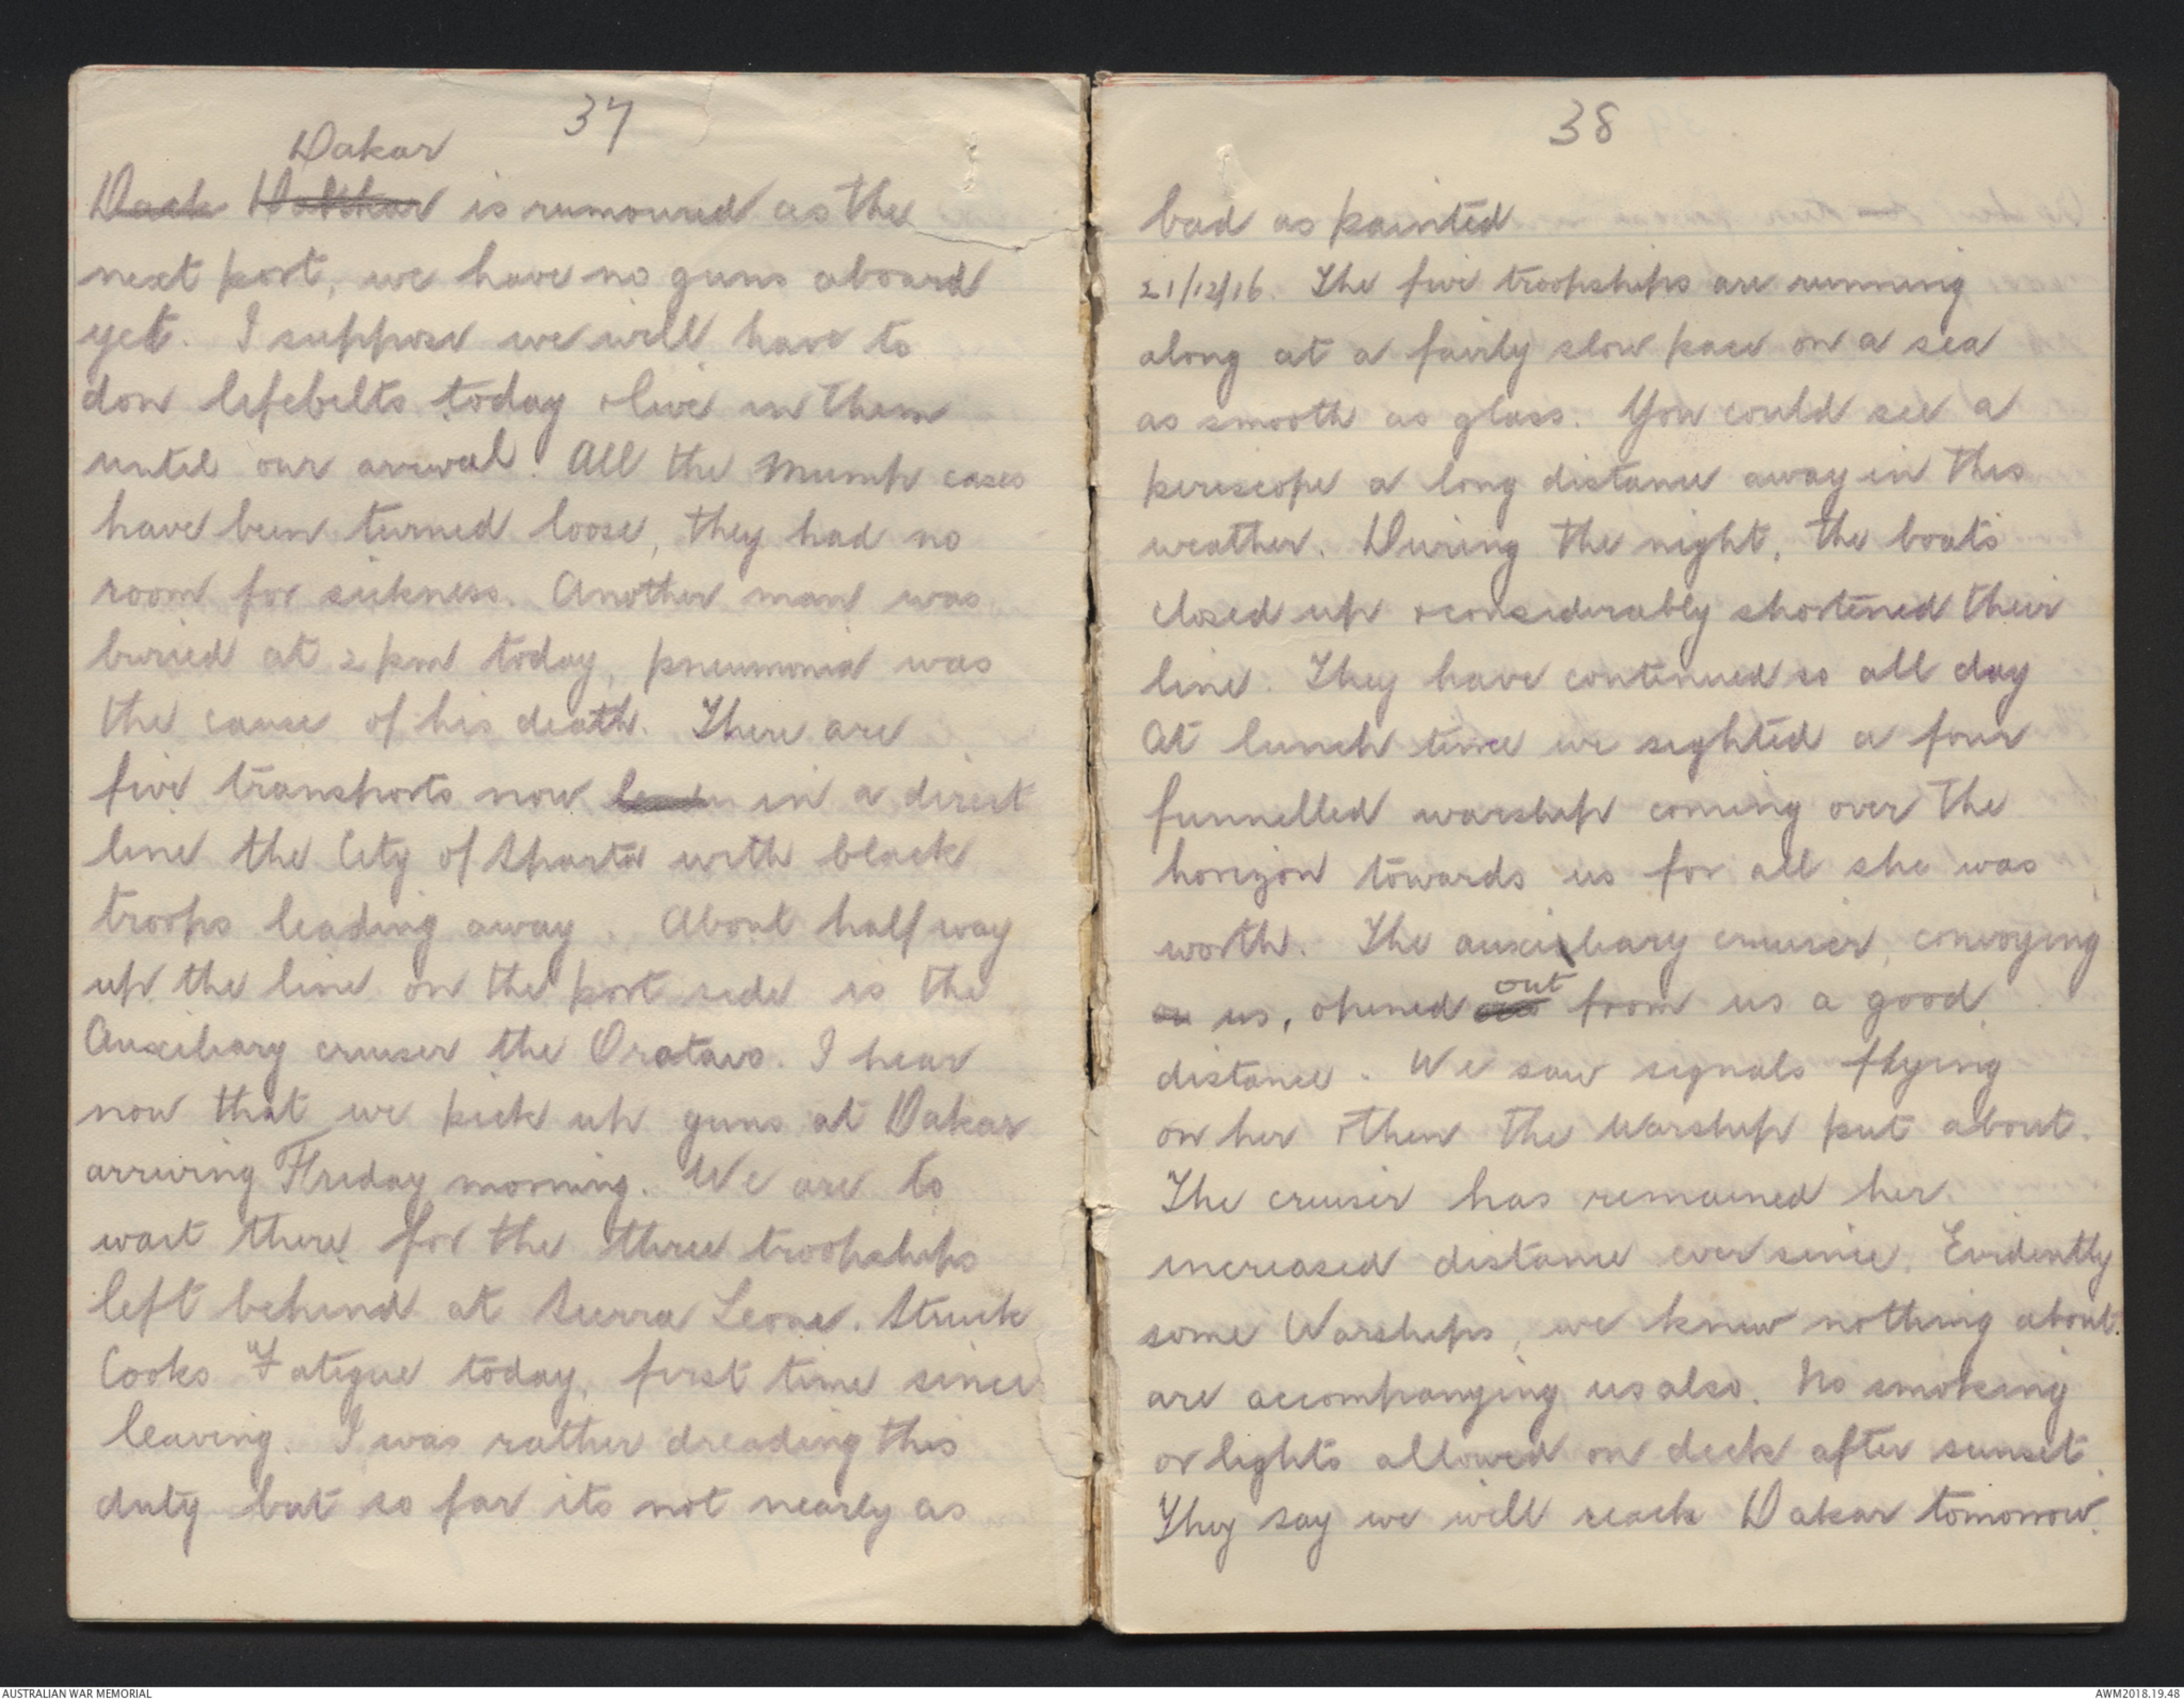 37
Dakar
Dack Dakkar is rumoured as the
next port, we have no guns aboard
yet. I suppose we will have to
don lifebelts today & live in them
until our arrival. All the Mump cases
have been turned loose, they had no
room for sickness. Another man was
buried at 2 pm today, pneumonia was
the cause of his death. There are
five transports now in a direct
line the City of Sparta with black
troops leading away. About half way
up the line on the port side is the
Auxiliary cruiser the Oratavo. I hear
now that we pick up guns at Dakar
arriving Friday morning. We are to
wait there for the three troopships
left behind at Sierra Leone. Struck
Cooks Fatigue today, first time since
leaving. I was rather dreading this
duty but so far its not nearly as
38
bad as painted
21/12/16. The five troopships are running
along at a fairly slow pace on a sea
as smooth as glass. You could see a
periscope a long distance away in this
weather. During the night, the boats
closed up & considerably shortened their
line. They have continued so all day
At lunch time we sighted a four
funnelled warship coming over the
horizon towards us for all she was
worth. The auxiliary cruiser, convoying
us, opened out from us a good
distance. We saw signals flying
on her & then the warship put about.
The cruiser has remained her
increased distance ever since. Evidently
some Warships, we know nothing about.
are accompanying us also. No smoking
or lights allowed on deck after sunset.
They say we will reach Dakar tomorrow.
AUSTRALIAN WAR MEMORIAL
AWM2018.19.48